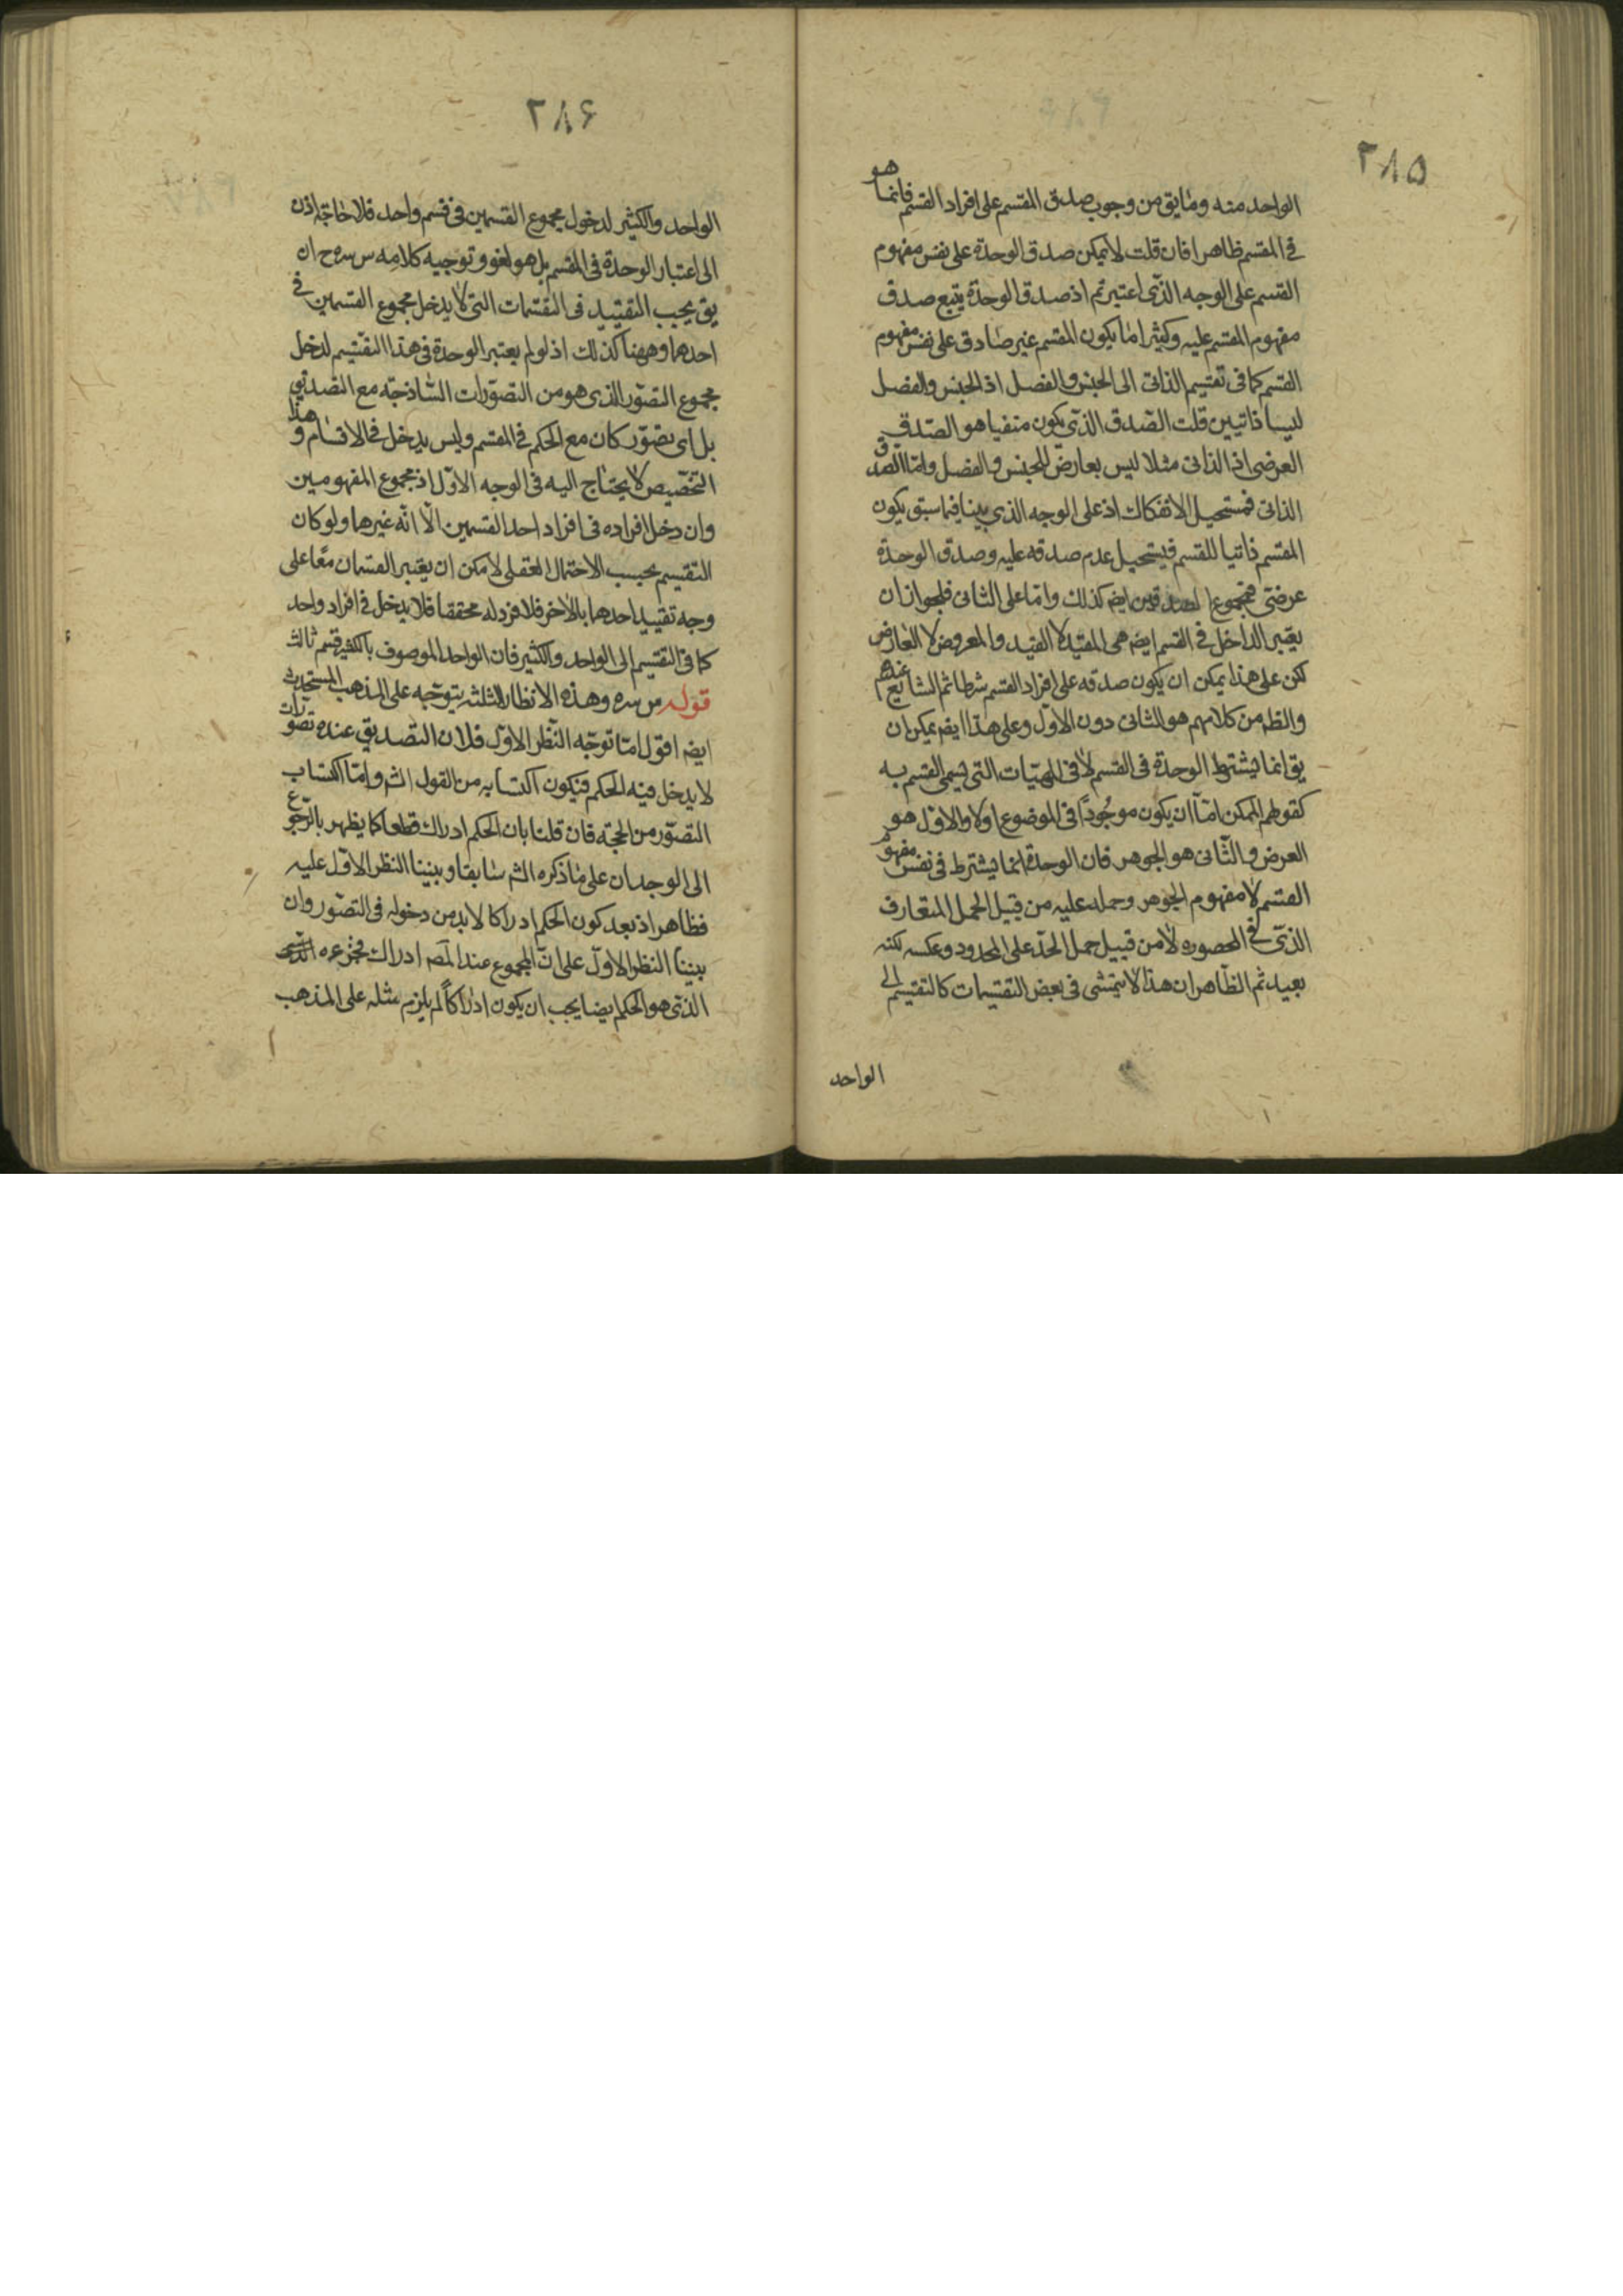 ٢٨٥
الواحد منه وما يق من وجوب صدق المقسم على افراد القسم فانما هو
في المقسم ظاهرا فان قلت لا يمكن صدق الوحدة على نفس مفهوم
القسم على الوجه الذى اعتبرتم اذ صدق الوحدة يتبع صدق
مفهوم المقسم عليه وكثيرا ما يكون المقسم غير صادق على نفس مفهوم
القسم كما فى تقسيم الذاتى الى الجنس والفصل اذ الجنس والفصل
ليسا ذاتيين قلت الصدق الذى يكون منفيا هو الصدق
العرضى اذ الذاتى مثلا ليس بعارض للجنس والفصل واما الصدق
الذاتى فمستحيل الانفكاك اذ على الوجه الذى بينا فيما سبق يكون
المقسم ذاتيا للقسم فيستحيل عدم صدقه عليه وصدق الوحدة
عرضى فمجموع الصدقين ايضا كذلك واما على الثانى فلجواز ان
يعتبر الداخل فى القسم ايضا هى المقيد لا القيد والمعروض لا العارض
لكن على هذا يمكن ان يكون صدقه على افراد القسم شرطا ثم الشايع عندهم
والظ من كلامهم هو الثانى دون الاول وعلى هذا ايضا يمكن ان
يق انما يشترط الوحدة فى القسم لا فى المهيات التى يسمى القسم به
كقولهم الممكن اما ان يكون موجودا فى الموضوع اولا والاول هو
العرض والثانى هو الجوهر فان الوحدة انما يشترط فى نفس مفهوم
القسم لا مفهوم الجوهر وحمله عليه من قبيل الحمل المتعارف
الذى فى المحصوره لا من قبيل حمل الحد على المحدود وعكسه لكنه
بعيد ثم الظاهر ان هذا لا يتمشى فى بعض التقسيمات كالتقسيم الى
الواحد
٢٨۶
الواحد والكثير لدخول مجموع القسمين فى قسم واحد فلا حاجة اذن
الى اعتبار الوحدة فى المقسم بل هو لغو وتوجيه كلامه س سره ح ان
يق يجب التقييد فى التقسيمات التى لا يدخل مجموع القسمين فى
احدهما وههنا كذلك اذ لو لم يعتبر الوحدة فى هذا التقسيم لدخل
مجموع التصور الذى هو من التصورات الساذجة مع التصديق
بل اى تصور كان مع الحكم فى المقسم وليس يدخل فى الاقسام وهذا
التخصيص لا يحتاج اليه فى الوجه الاول اذ مجموع المفهومين
وان دخل افراده فى افراد احد القسمين الا انه غيرها ولو كان
التقسيم بحسب الاحتمال العقلى لامكن ان يعتبر القسمان معا على
وجه تقييد احدهما بالاخر فلا فرد له محققا فلا يدخل فى افراد واحد
كما فى التقسيم الى الواحد والكثير فان الواحد الموصوف بالكثير قسم ثالث
قوله س سره وهذه الانظار الثلثة يتوجه على المذهب المستحدث
ايضا اقول اما توجه النظر الاول فلان التصديق عنده تصورات
لا يدخل فيه الحكم فيكون اكتسابه من القول الشـ واما اكتساب
التصور من الحجة فان قلنا بان الحكم ادراك قطعا كما يظهر بالرجوع
الى الوجدان على ما ذكره الشـ سابقا وبنينا النظر الاول عليه
فظاهر اذ بعد كون الحكم ادراكا لا بد من دخوله فى التصور وان
بنينا النظر الاول على ان المجموع عند المصـ ادراك فجزءه
الذى هو الحكم ايضا يجب ان يكون ادراكا لم يلزم مثله على المذهب